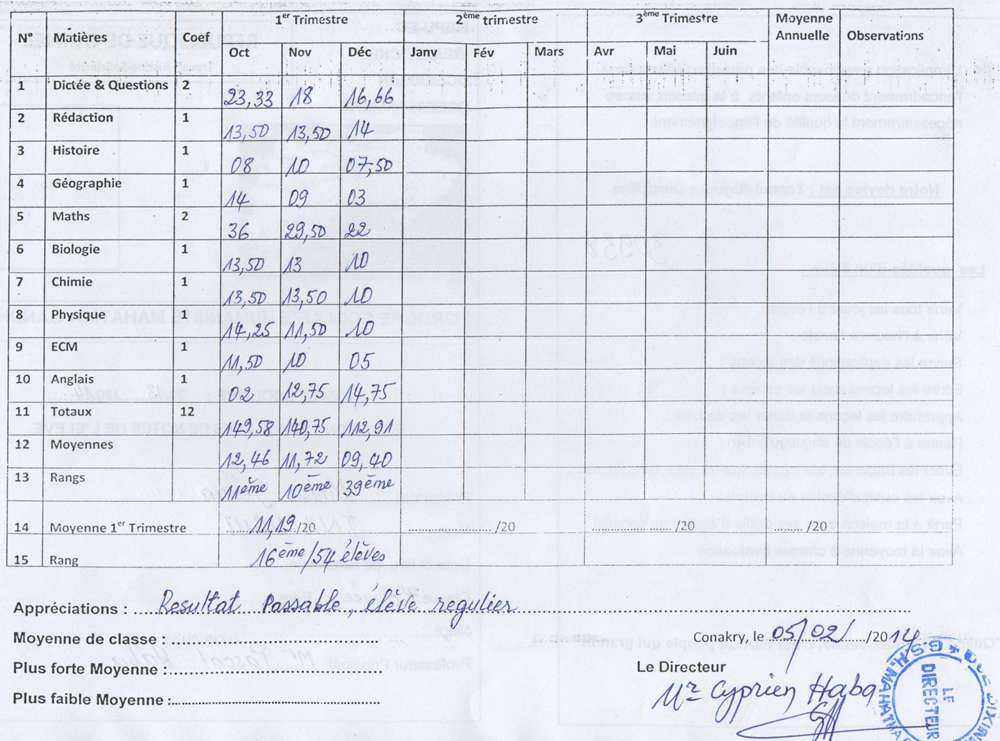 N° Matières Coef 1er Trimestre 2ème trimestre 3ème Trimestre Moyenne Annuelle Observations
Oct Nov Déc Janv Fév Mars Avr Mai Juin
1 Dictée & Questions 2 23,33 18 16,66
2 Rédaction 1 13,50 13,50 14
3 Histoire 1 08 10 07,50
4 Géographie 1 14 09 03
5 Maths 2 36 29,50 22
6 Biologie 1 13,50 13 10
7 Chimie 1 13,50 13,50 10
8 Physique 1 14,25 11,50 10
9 ECM 1 11,50 10 05
10 Anglais 1 02 12,75 14,75
11 Totaux 12 149,58 140,75 112,91
12 Moyennes 12,46 11,72 09,40
13 Rangs 11ème 10ème 39ème
14 Moyenne 1er Trimestre 11,19/20 /20 /20 /20
15 Rang 16ème/54 élèves
Appréciations : Resultat Passable, élève regulier
Moyenne de classe :
Conakry, le 05/02/2014
Plus forte Moyenne :
Le Directeur
Plus faible Moyenne :
Mr Cyprien Haba
LE DIRECTEUR